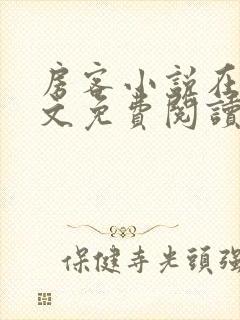 房客小說在
文免費閱讀
保健寺光頭強